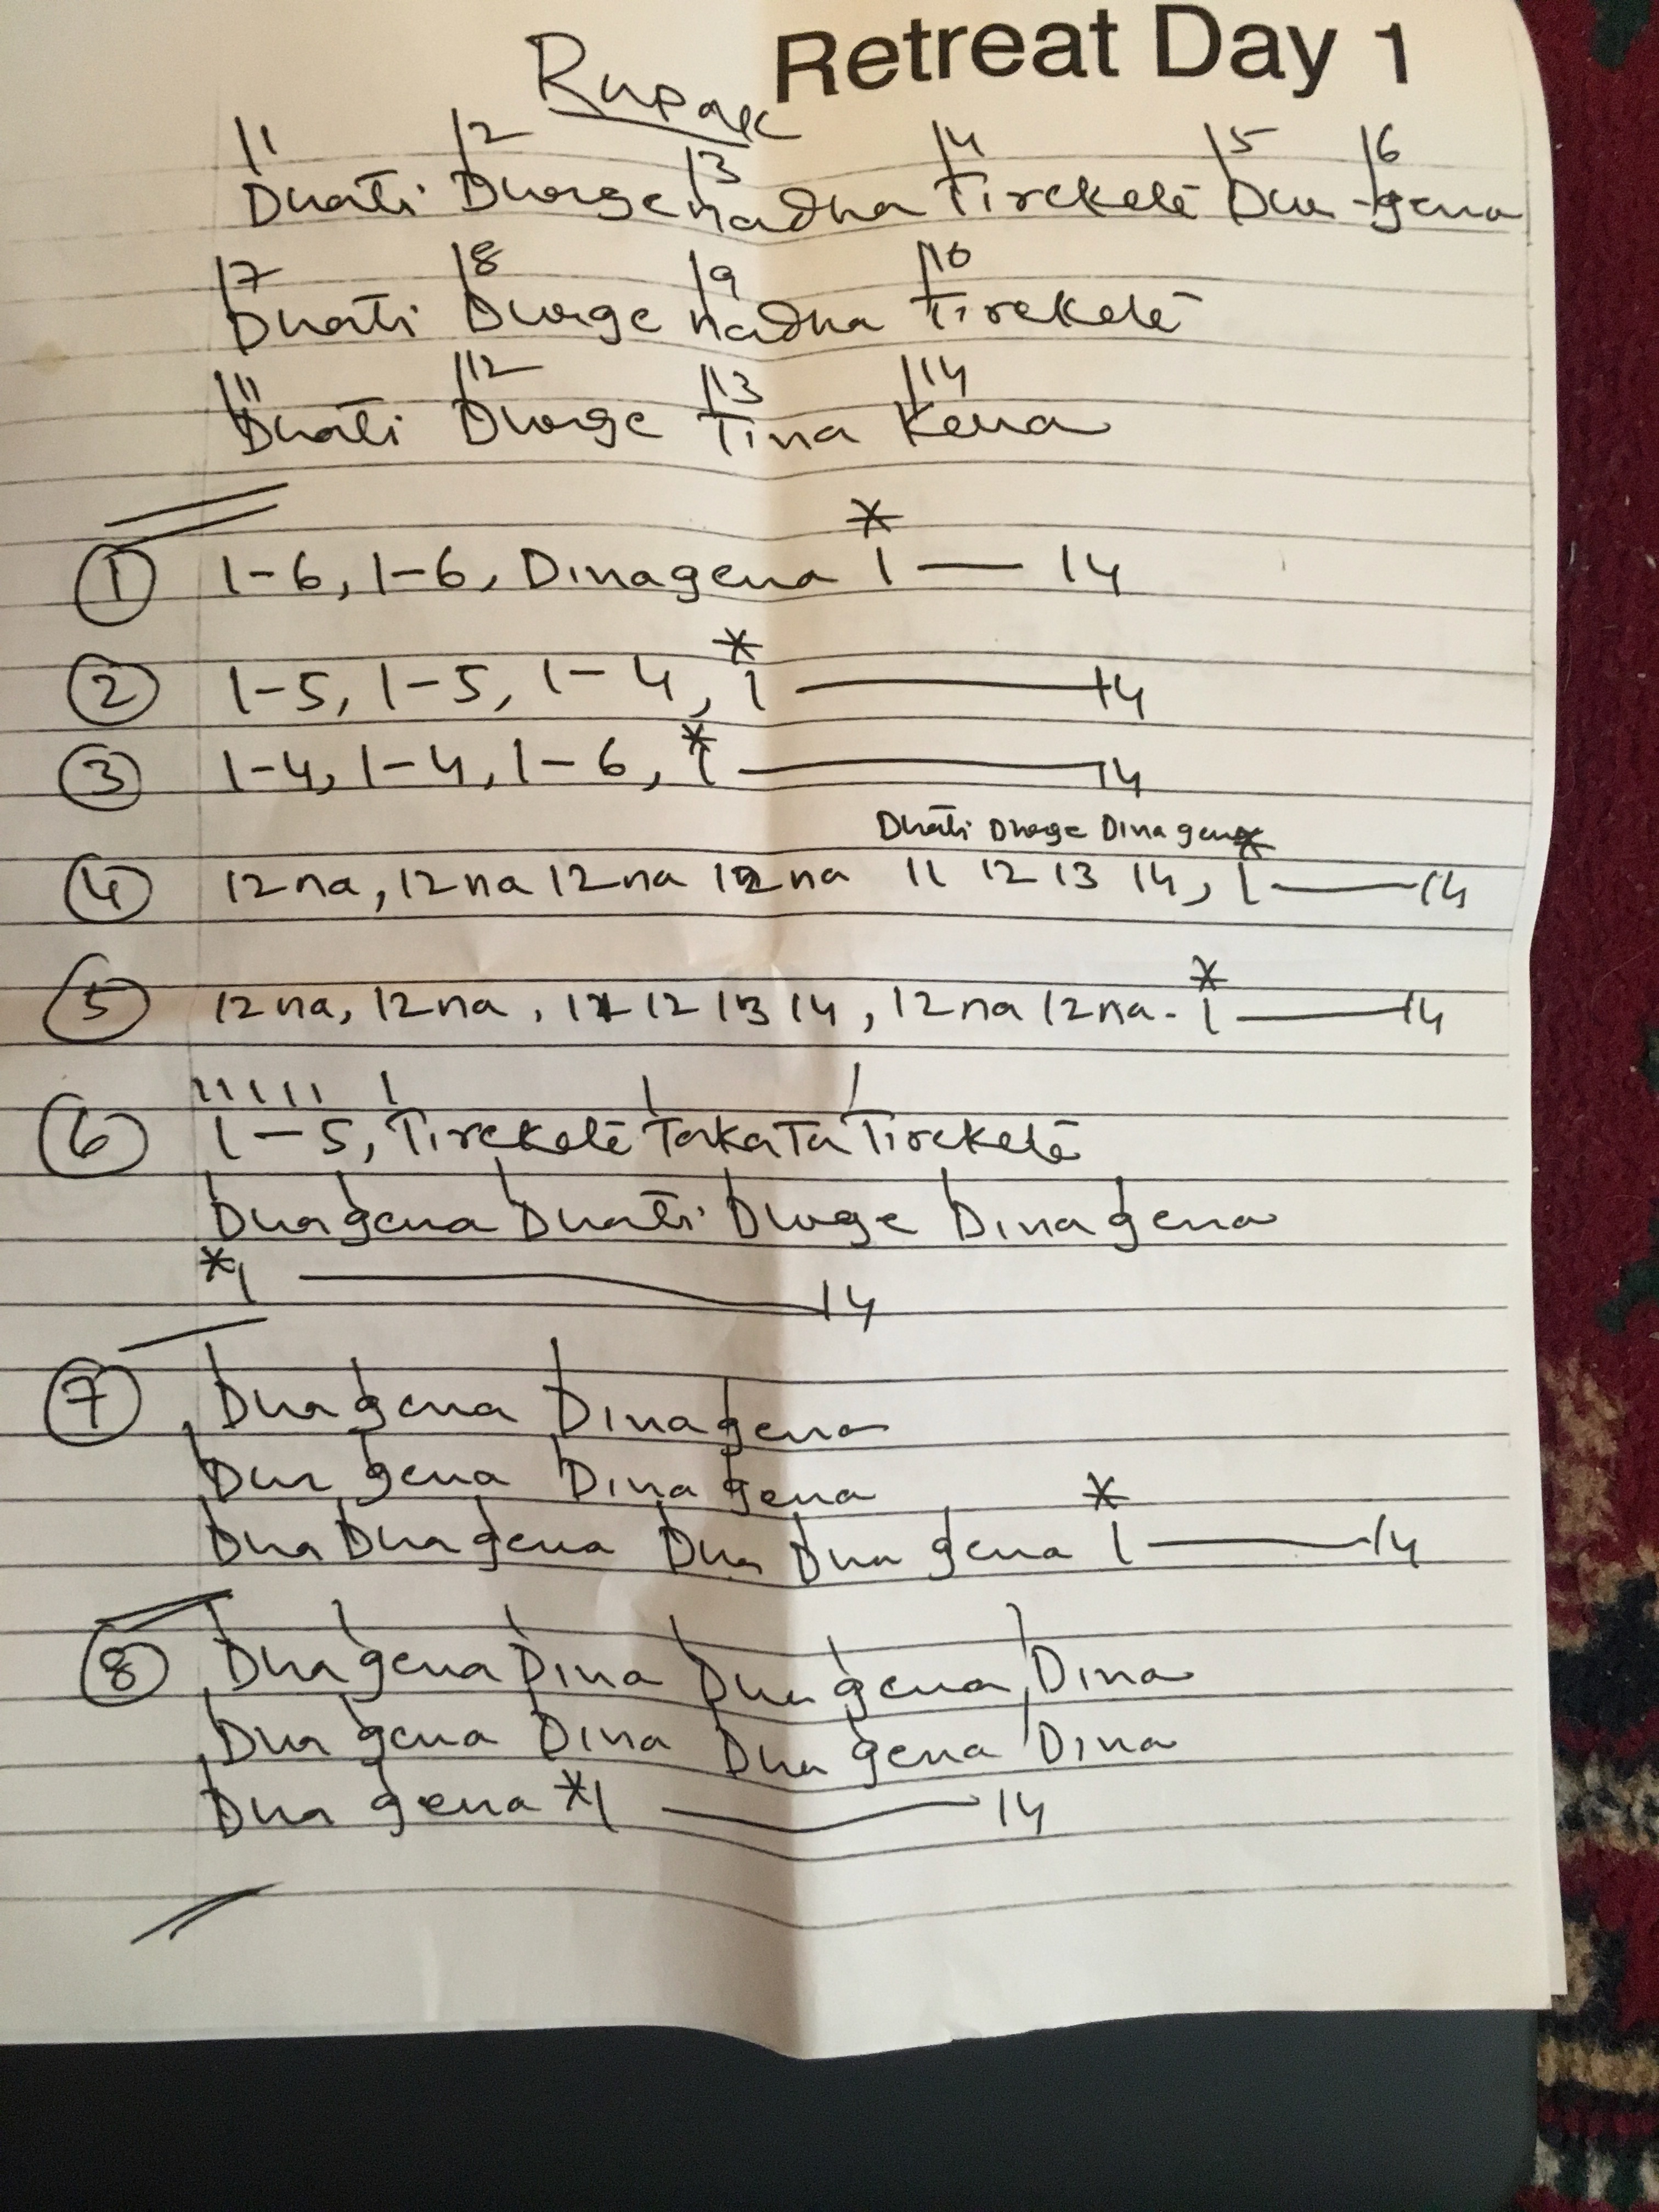 Retreat Day 1
Rupak
1 2 3 4 5 6
Dhati Dhage nadha Tirekete Dha - gena
7 8 9 10
Dhati Dhage nadha Tirekete
11 12 13 14
Dhati Dhage Tina Kena
*
① 1-6, 1-6, Dinagena 1 — 14
*
② 1-5, 1-5, 1-4, 1 — 14
*
③ 1-4, 1-4, 1-6, 1 — 14
Dhati Dhage Dinagena *
④ 12na, 12na 12na 12na 11 12 13 14, 1 — 14
*
⑤ 12na, 12na, 11 12 13 14, 12na 12na - 1 — 14
⑥ 1-5, Tirekete TakaTa Tirekete
Dhagena Dhati Dhage Dinagena
*1 — 14
⑦ Dhagena Dinagena
Dha gena Dinagena
*
Dha Dhagena Dha Dha gena 1 — 14
⑧ Dhagena Dina Dhagena Dina
Dha gena Dina Dha gena Dina
Dha gena *1 — 14